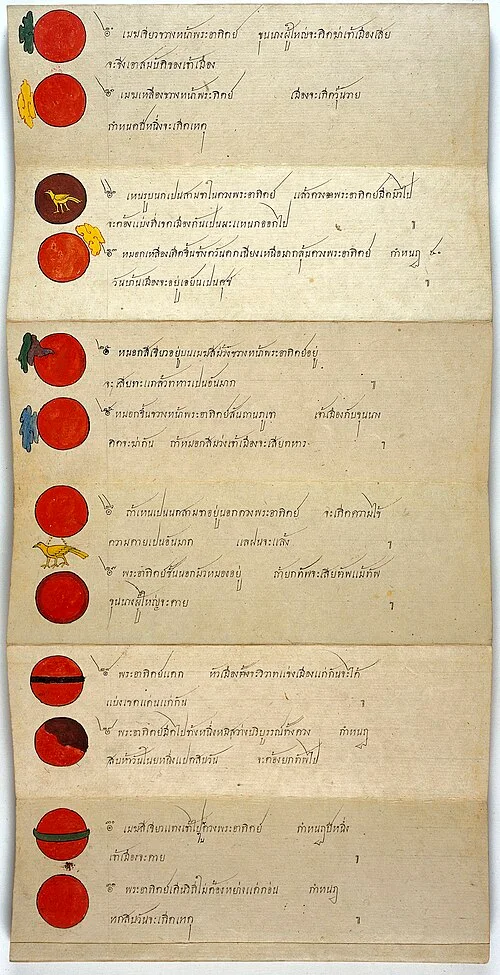 ๏ เมฆเขียวขวางหน้าพระอาทิตย์ ขุนนางผู้ใหญ่จะคิดฆ่าเจ้าเมืองเสีย
จะชิงเอาสมบัติของเจ้าเมือง
๏ เมฆเหลืองขวางหน้าพระอาทิตย์ เมืองจะเกิดวุ่นวาย
กำหนดปีหนึ่งจะเกิดเหตุ
๏ เหนรูปนกเปนสามขาในดวงพระอาทิตย์ แล้วดวงพระอาทิตย์มืดมัวไป
จะต้องแบ่งที่เขตเมืองกันเปนแพนกออกไป ฯ
๏ หมอกเหลืองเกิดขึ้นข้างตวันตกเฉียงเหนือมากลุ้มดวงพระอาทิตย์ กำหนด
วันบ้านเมืองจะอยู่เยนเปนศุข ฯ
๏ หมอกสีเขียวอยู่บนเมฆสีม่วงขวางหน้าพระอาทิตย์อยู่
จะเสียทะแกล้วทหารเปนอันมาก ฯ
๏ หมอกขึ้นขวางหน้าพระอาทิตย์ เจ้าเมืองกับขุนนาง
คิดจะฆ่ากัน ถ้าหมอกสีม่วงเจ้าเมืองจะเสียทหาร ฯ
๏ ถ้าเหนเปนนกสามขาอยู่นอกดวงพระอาทิตย์ จะเกิดความไข้
ความตายเปนอันมาก แลฝนจะแล้ง ฯ
๏ พระอาทิตย์ชั้นนอกมัวหมองอยู่ ถ้ายกทัพจะเสียทัพแม่ทัพ
ขุนนางผู้ใหญ่จะตาย ฯ
๏ พระอาทิตย์แตก หัวเมืองทั้งจะวิวาทแย่งเมืองแก่กันจะได้
แบ่งเขตแดนแก่กัน
๏ พระอาทิตย์มืดไปข้างหนึ่งสว่างบริบูรรณ์ทั้งดวง กำหนด
สิบห้าวัน จะต้องยกทัพไป ฯ
๏ เมฆสีเขียวแทงเข้าไปในดวงพระอาทิตย์ กำหนดปีหนึ่ง
เจ้าเมืองจะตาย ฯ
๏ พระอาทิตย์เดินวิถีไม่ต้องหย่างแต่ก่อน กำหนด
หกสิบวันจะเกิดเหตุ ฯ